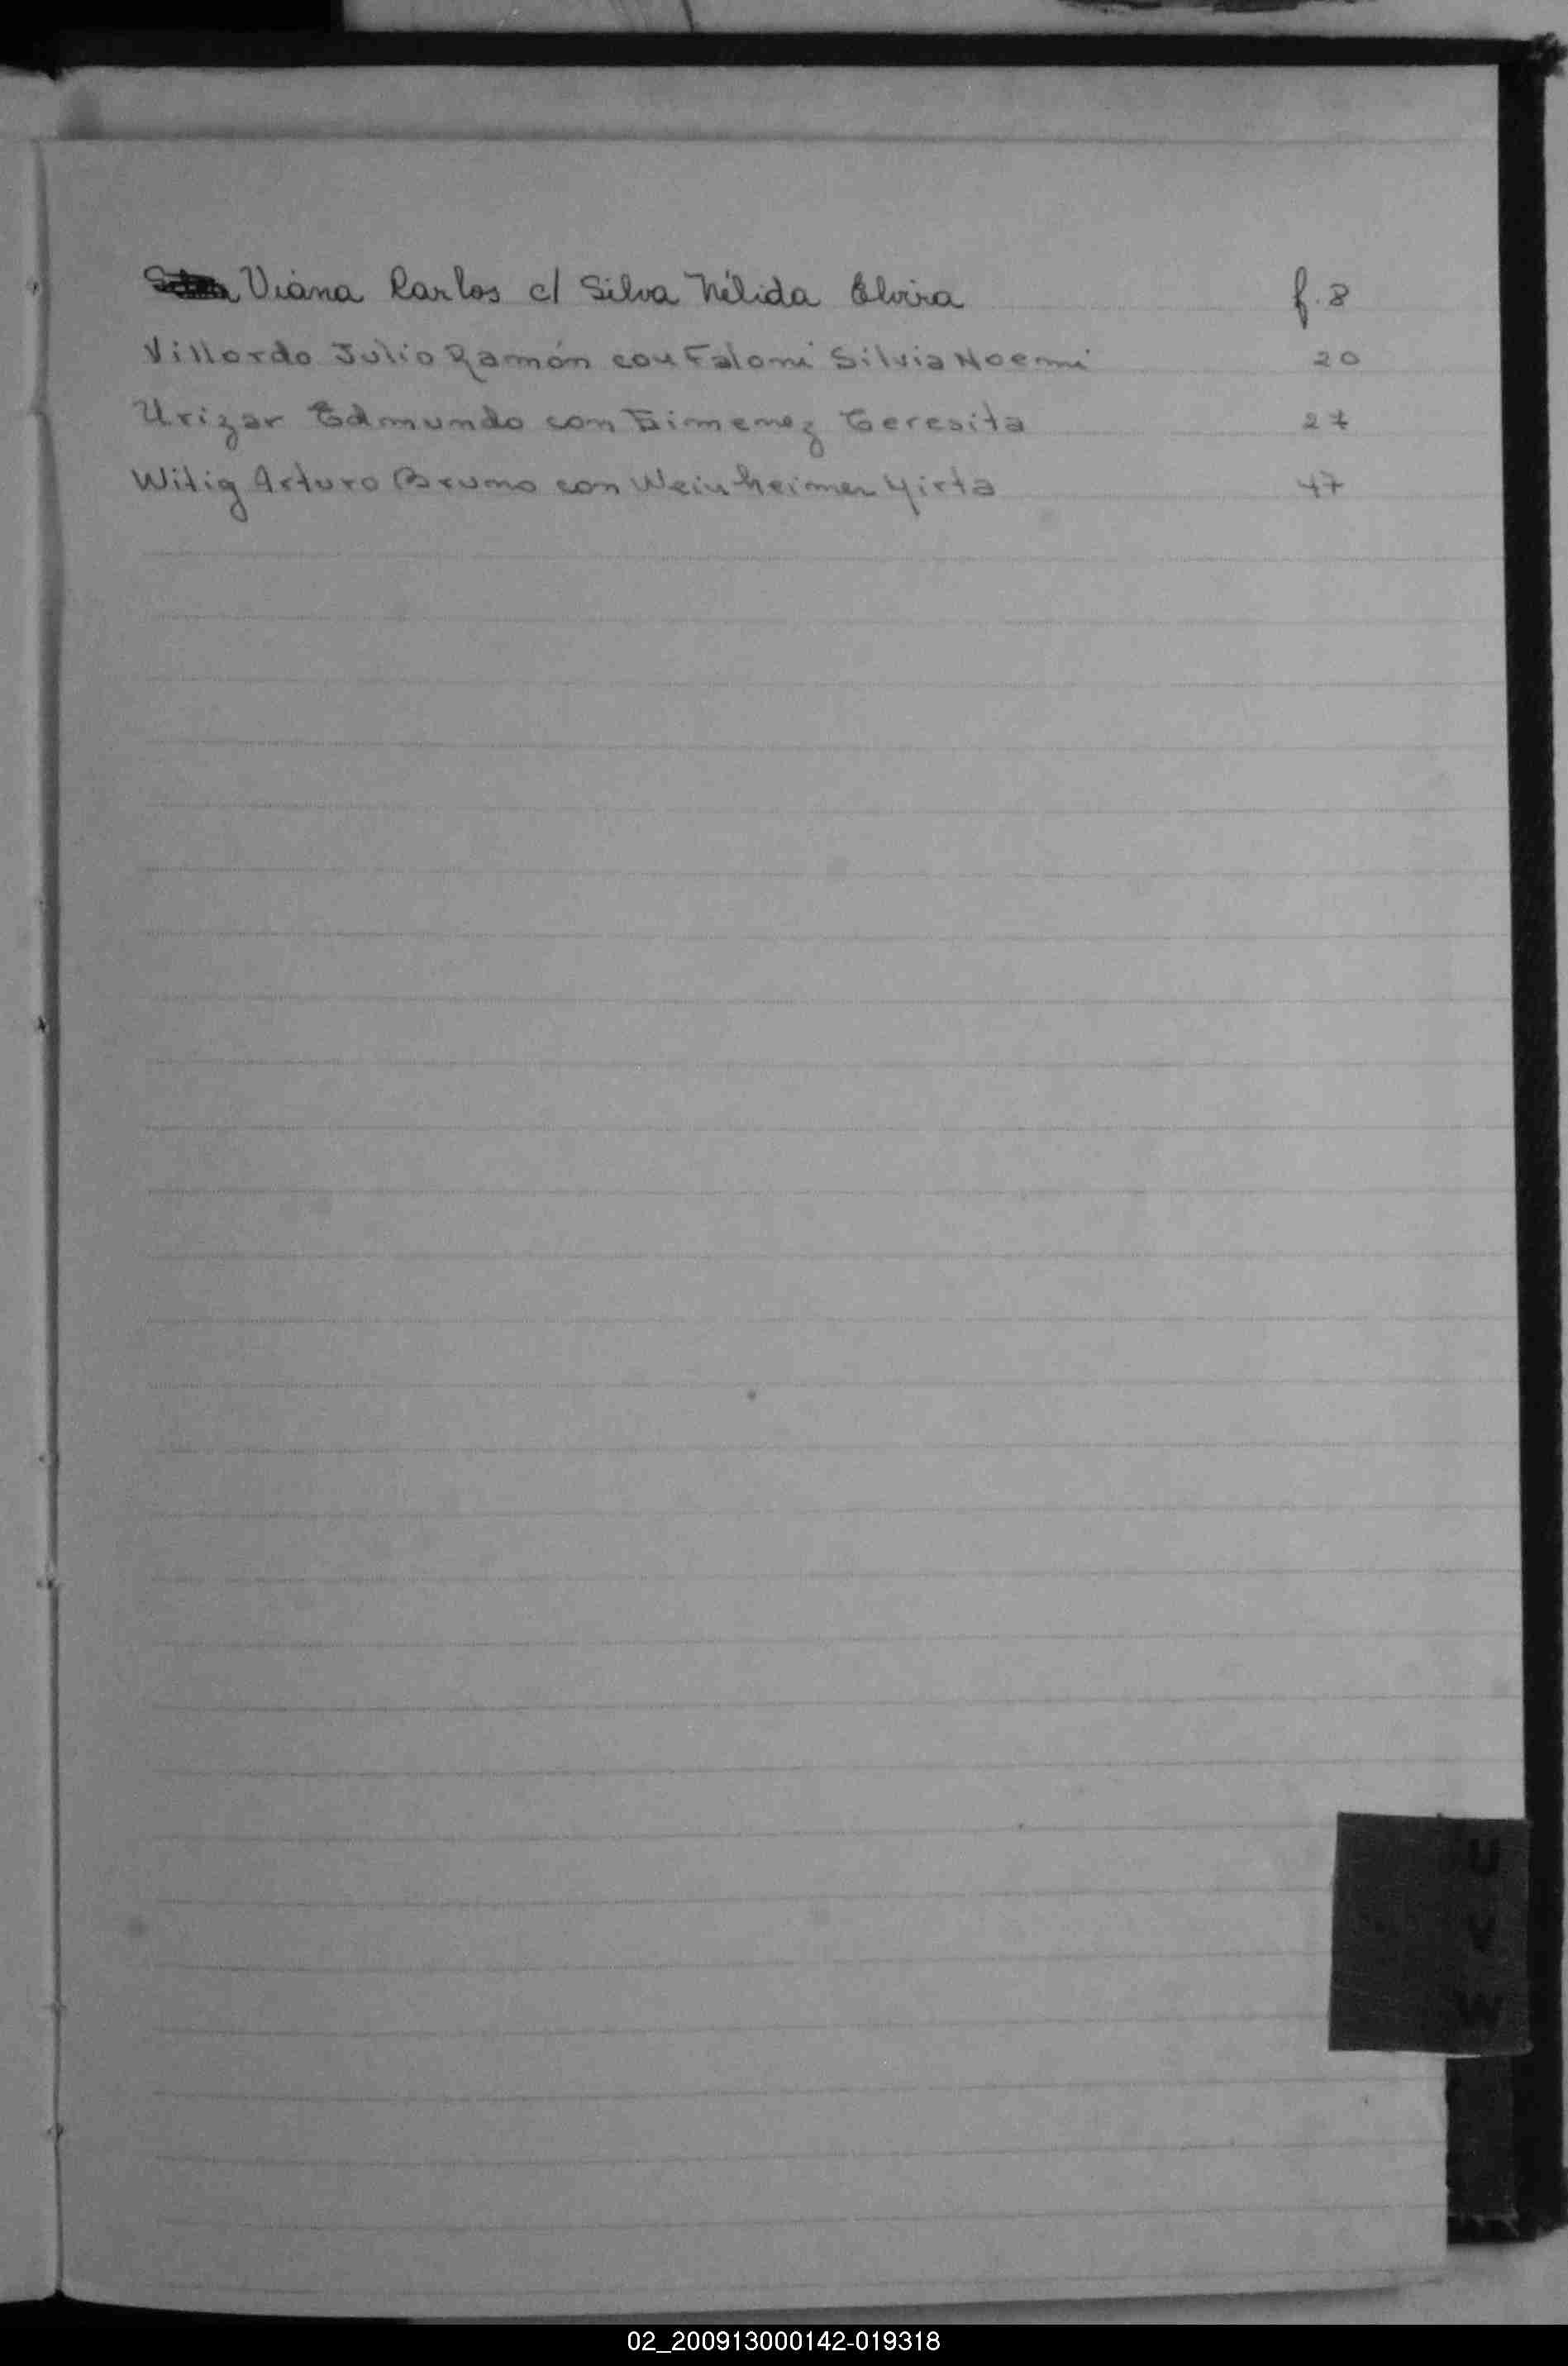 Viana Carlos c/ Silva Nélida Elvira f. 8
Villordo Julio Ramón con Falomi Silvia Noemi 20
Urizar Edmundo con Gimenez Teresita 27
Witig Arturo Bruno con Weinheimer Mirta 47
U
V
W
02_200913000142-019318